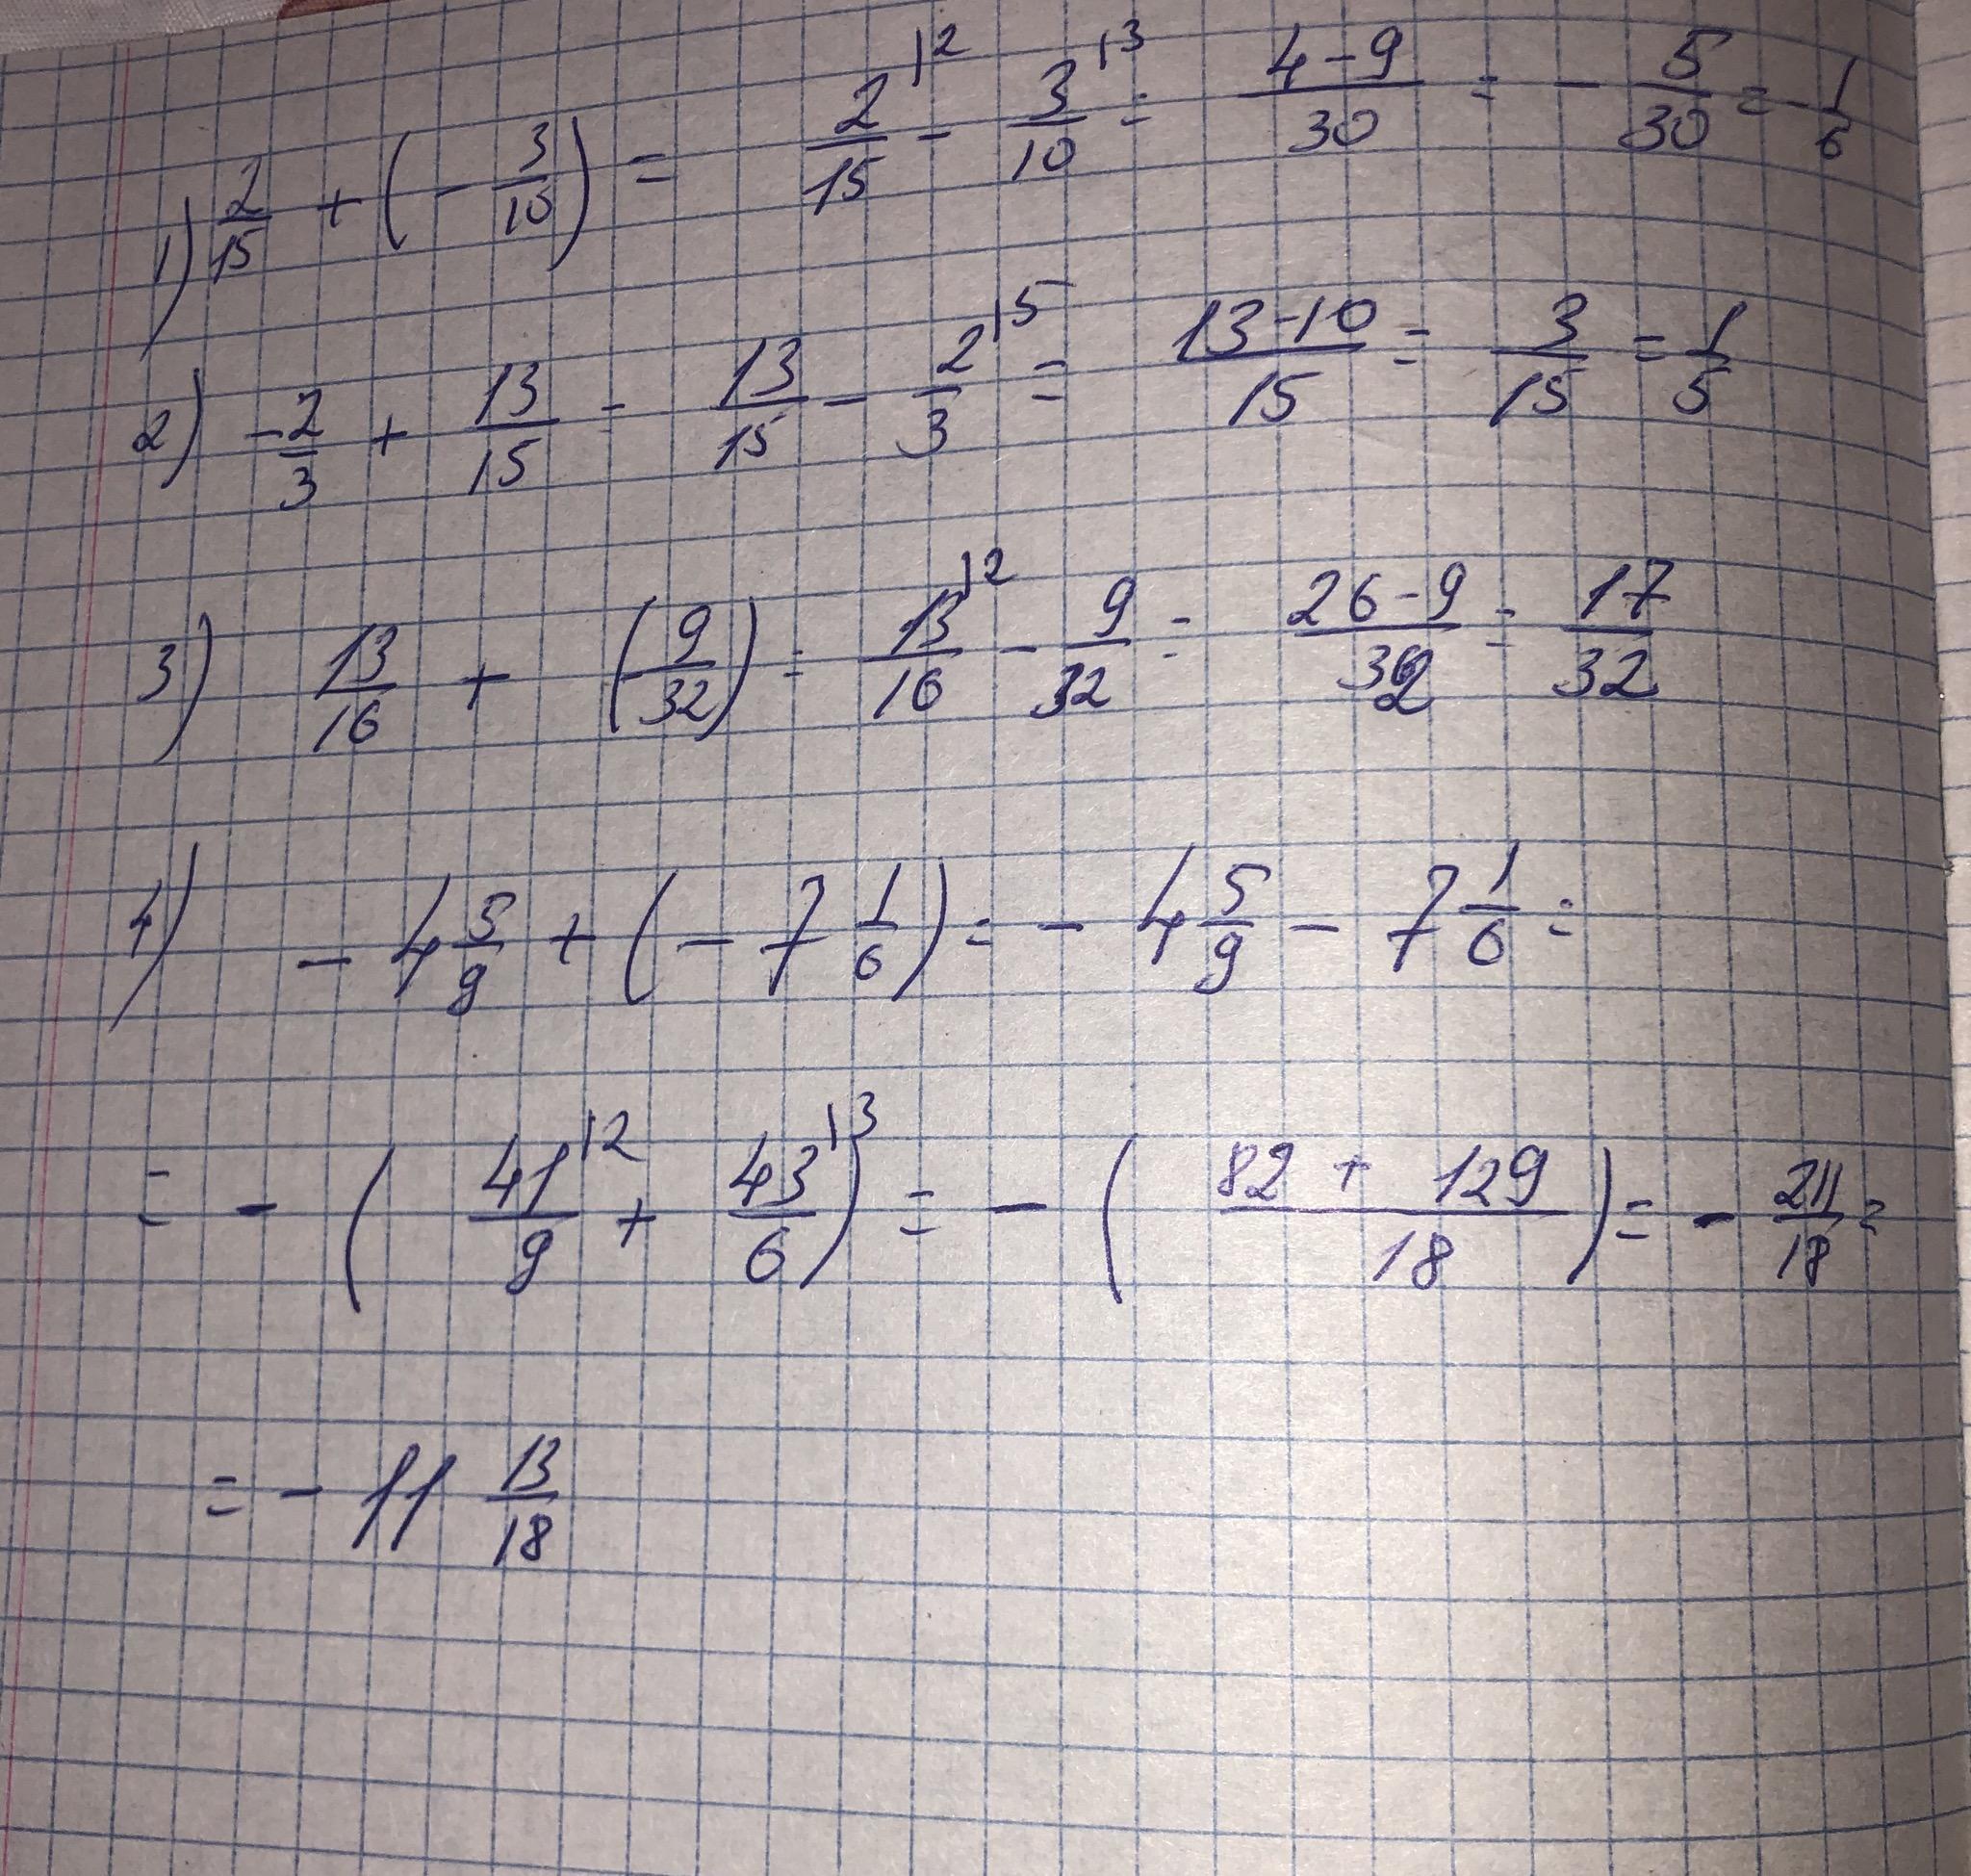 1) 2/15 + (- 3/10) = 2/15 |2 - 3/10 |3 = 4-9/30 = - 5/30 = - 1/6
2) -2/3 + 13/15 = 13/15 - 2/3 |5 = 13-10/15 = 3/15 = 1/5
3) 13/16 + (- 9/32) = 13/16 |2 - 9/32 = 26-9/32 = 17/32
4) - 4 5/9 + (- 7 1/6) = - 4 5/9 - 7 1/6 =
= - ( 41/9 |2 + 43/6 |3 ) = - ( 82 + 129/18 ) = - 211/18 =
= - 11 13/18